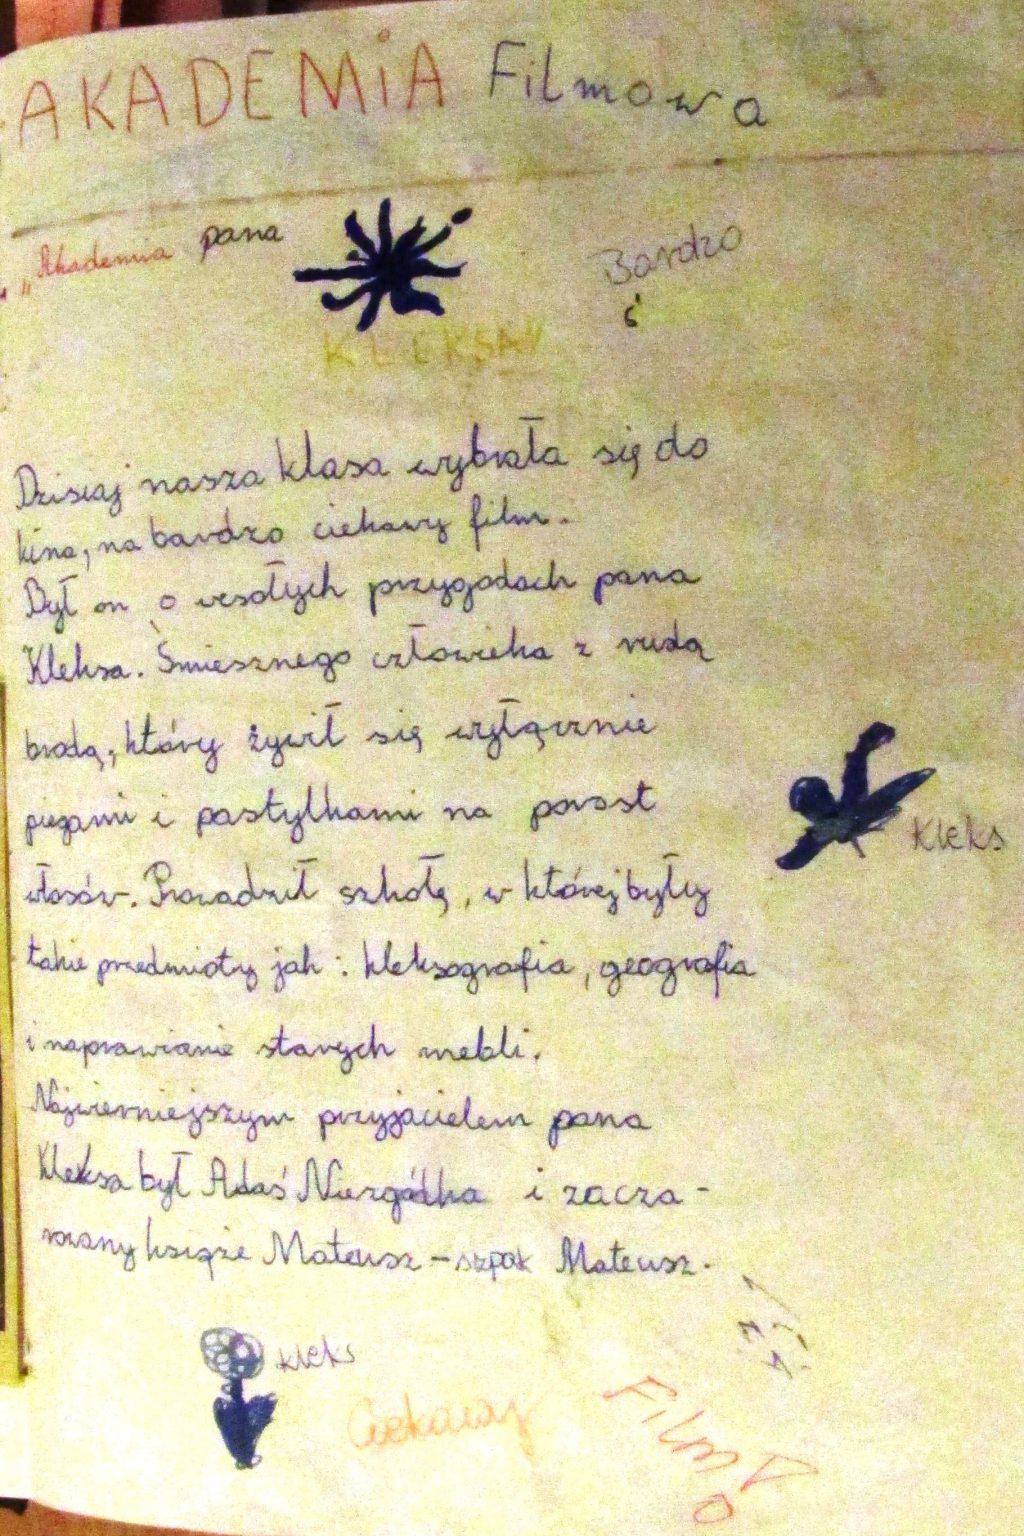 AKADEMiA Filmowa
„Akademia pana
KLEKSA"
Bardzo
Dzisiaj nasza klasa wybrała się do
kina, na bardzo ciekawy film.
Był on o wesołych przygodach pana
Kleksa. Śmiesznego człowieka z rudą
brodą, który żywił się wyłącznie
piegami i pastylkami na porost
włosów. Prowadził szkołę, w której były
takie przedmioty jak: kleksografia, geografia
i naprawianie starych mebli.
Najwierniejszym przyjacielem pana
Kleksa był Adaś Niezgódka i zacza-
rowany książe Mateusz - szpak Mateusz.
Kleks
kleks
Ciekawy
Film